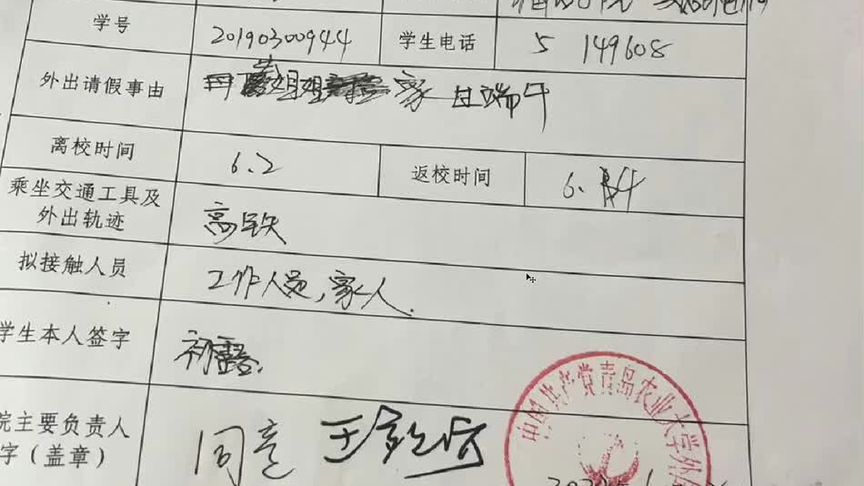 学号 20190300944 学生电话 5 149608
外出请假事由 家过端午
离校时间 6.2 返校时间 6.4
乘坐交通工具及
外出轨迹 高铁
拟接触人员 工作人员,家人.
学生本人签字 初露.
院主要负责人
字(盖章) 同意
中国共产党青岛农业大学外